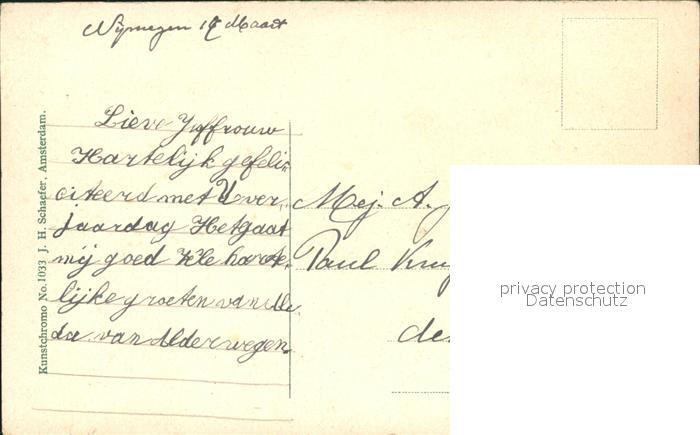 Nijmegen 17 Maart
Lieve Juffrouw
Hartelijk gefeli-
citeerd met U ver-
jaardag Het gaat
mij goed Vele harte-
lijke groeten van Me
da van Alderwegen.
Mej. A.
Paul Krug
de
Kunstchromo No. 1033 J. H. Schaefer, Amsterdam.
privacy protection
Datenschutz